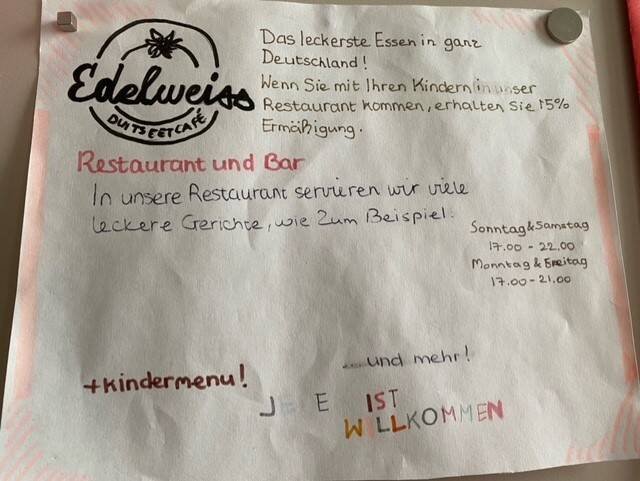 Edelweiss
DUITS EETCAFÉ
Das leckerste Essen in ganz
Deutschland!
Wenn Sie mit Ihren Kindern in unser
Restaurant kommen, erhalten Sie 15%
Ermäßigung.
Restaurant und Bar
In unsere Restaurant servieren wir viele
leckere Gerichte, wie Zum Beispiel:
Sonntag & Samstag
17.00 - 22.00
Monntag & Freitag
17.00 - 21.00
....und mehr!
+Kindermenu!
IST
WILLKOMMEN